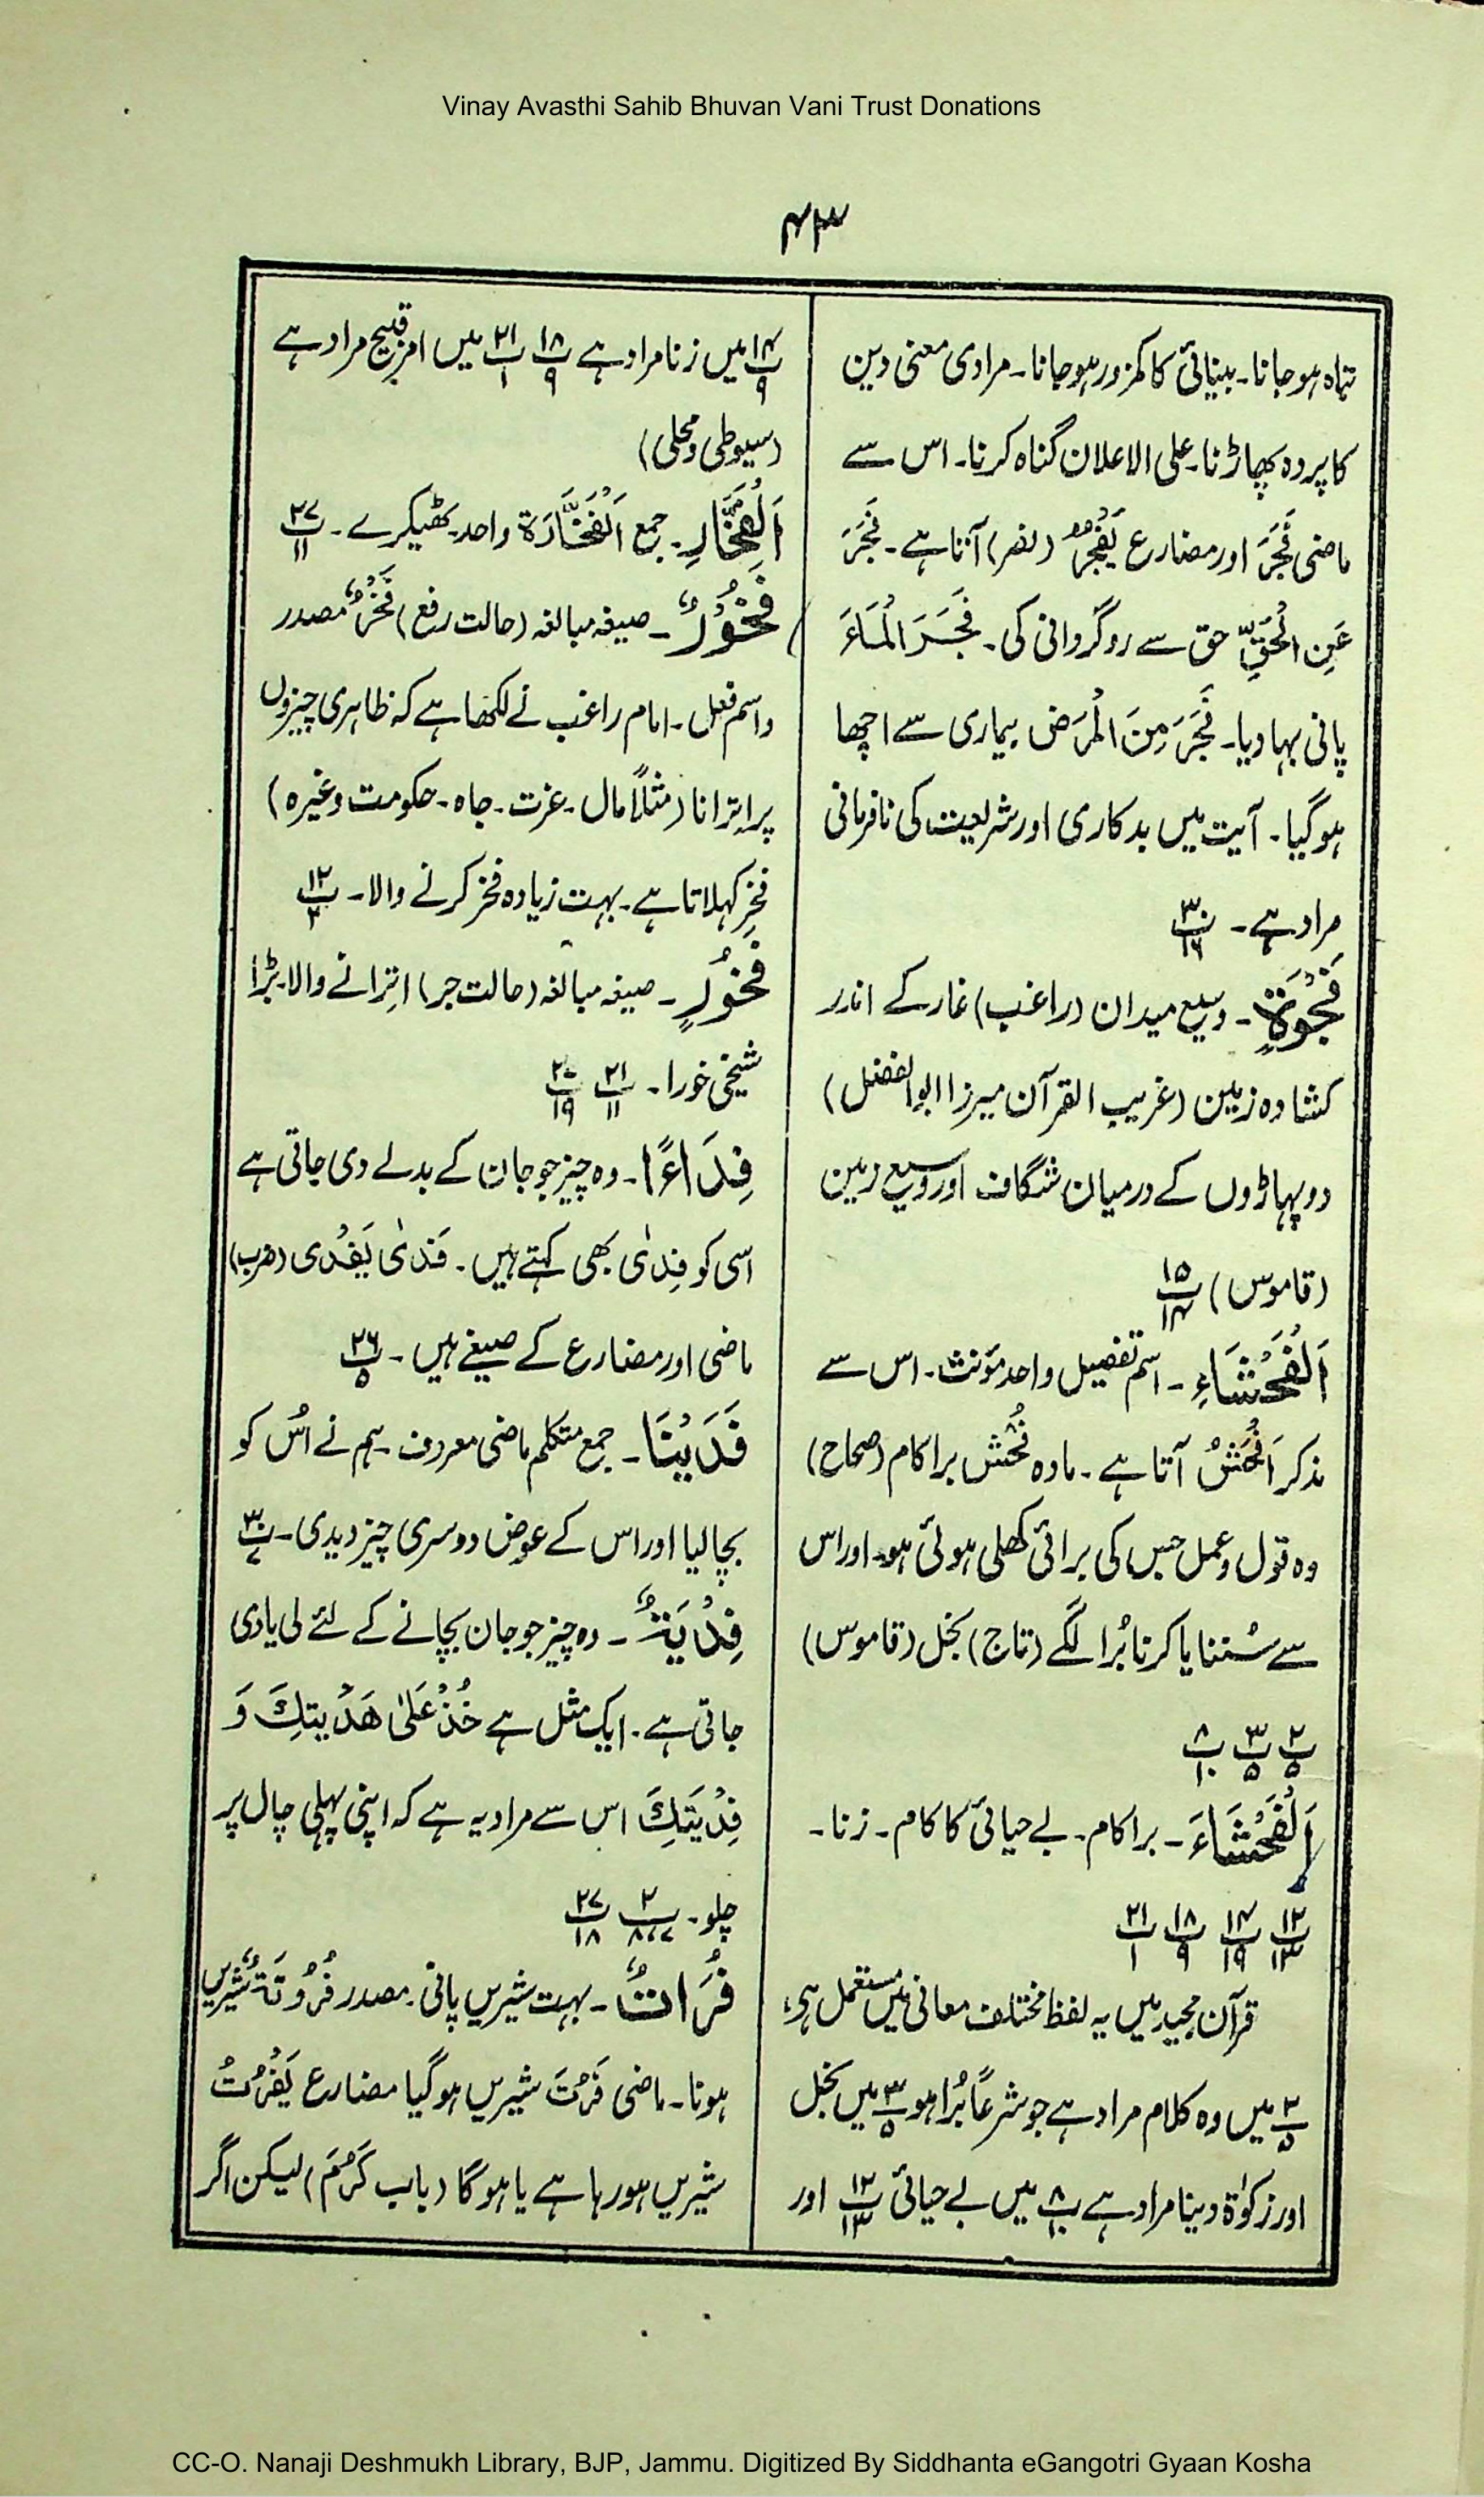 Vinay Avasthi Sahib Bhuvan Vani Trust Donations
۴۳
تباہ ہو جانا۔ بینائی کا کمزور ہو جانا۔ مرادی معنی دین
کا پردہ پھاڑنا۔ علی الاعلان گناہ کرنا۔ اس سے
ماضی فَجَرَ اور مضارع یَفْجُرُ (نصر) آتا ہے۔ فَجَرَ
عَنِ الْحَقِّ حق سے روگردانی کی۔ فَجَرَ الْمَاءَ
پانی بہا دیا۔ فَجَرَ مِنَ الْمَرَضِ بیماری سے اچھا
ہو گیا۔ آیت میں بدکاری اور شریعت کی نافرمانی
مراد ہے۔ پ۳۰/۱۶
فَجْوَةٍ۔ وسیع میدان (راغب) غار کے اندر
کشادہ زمین (غریب القرآن میرزا ابوالفضل)
دو پہاڑوں کے درمیان شگاف اور وسیع زمین
(قاموس) پ۱۵/۱۴
اَلْفَحْشَاءِ۔ اسم تفضیل واحد مؤنث۔ اس سے
مذکر اَفْحَشُ آتا ہے۔ مادہ فُحْش برا کام (صحاح)
وہ قول و عمل جس کی برائی کھلی ہوئی ہو۔ اور اس
سے سُننا یا کرنا بُرا لگے (تاج) بخل (قاموس)
پ۲/۵ پ۳/۵ پ۸/۱۰
اَلْفَحْشَاءَ۔ برا کام۔ بے حیائی کا کام۔ زنا۔
پ۱۲/۱۳ پ۱۴/۱۹ پ۱۸/۹ پ۲۱/۱
قرآن مجید میں یہ لفظ مختلف معانی میں مستعمل ہی،
پ۲/۵ میں وہ کلام مراد ہے جو شرعاً بُرا ہو پ۳/۵ میں بخل
اور زکوٰة دینا مراد ہے پ۸/۱۰ میں بے حیائی پ۱۲/۱۳ اور
پ۱۴/۹ میں زنا مراد ہے پ۱۸/۹ پ۲۱/۱ میں امر قبیح مراد ہے
(سیوطی و محلی)
اَلْفَخَّارِ۔ جمع اَلْفَخَّارَة واحد۔ ٹھیکرے۔ پ۲۷/۱۱
فَخُوْرٌ۔ صیغہ مبالغہ (حالت رفع) فَخْرٌ مصدر
و اسم فعل۔ امام راغب نے لکھا ہے کہ ظاہری چیزوں
پر اِترانا (مثلاً مال۔ عزت۔ جاہ۔ حکومت وغیرہ)
فخر کہلاتا ہے۔ بہت زیادہ فخر کرنے والا۔ پ۱۲/۲
فَخُوْرٍ۔ صیغہ مبالغہ (حالت جر) اِترانے والا۔ بڑا
شیخی خورا۔ پ۲۱/۱۱ پ۲۷/۱۹
فِدَاءً۔ وہ چیز جو جان کے بدلے دی جاتی ہے
اسی کو فِدٰی بھی کہتے ہیں۔ فَدٰی یَفْدِی (ضرب)
ماضی اور مضارع کے صیغے ہیں۔ پ۲۶/۵
فَدَیْنَا۔ جمع متکلم ماضی معروف۔ ہم نے اُس کو
بچا لیا اور اس کے عوض دوسری چیز دیدی۔ پ۲۳/۷
فِدْیَةٌ۔ وہ چیز جو جان بچانے کے لئے لی یا دی
جاتی ہے۔ ایک مثل ہے خُذْ عَلٰی هَدْیَتِكَ وَ
فِدْیَتِكَ اس سے مراد یہ ہے کہ اپنی پہلی چال پر
چلو۔ پ۲/۷،۸ پ۲۷/۱۸
فُرَاتٌ۔ بہت شیریں پانی۔ مصدر فُرُوْتَةٌ شیریں
ہونا۔ ماضی فَرُتَ شیریں ہو گیا مضارع یَفْرُتُ
شیریں ہو رہا ہے یا ہوگا (باب کَرُمَ) لیکن اگر
CC-O. Nanaji Deshmukh Library, BJP, Jammu. Digitized By Siddhanta eGangotri Gyaan Kosha